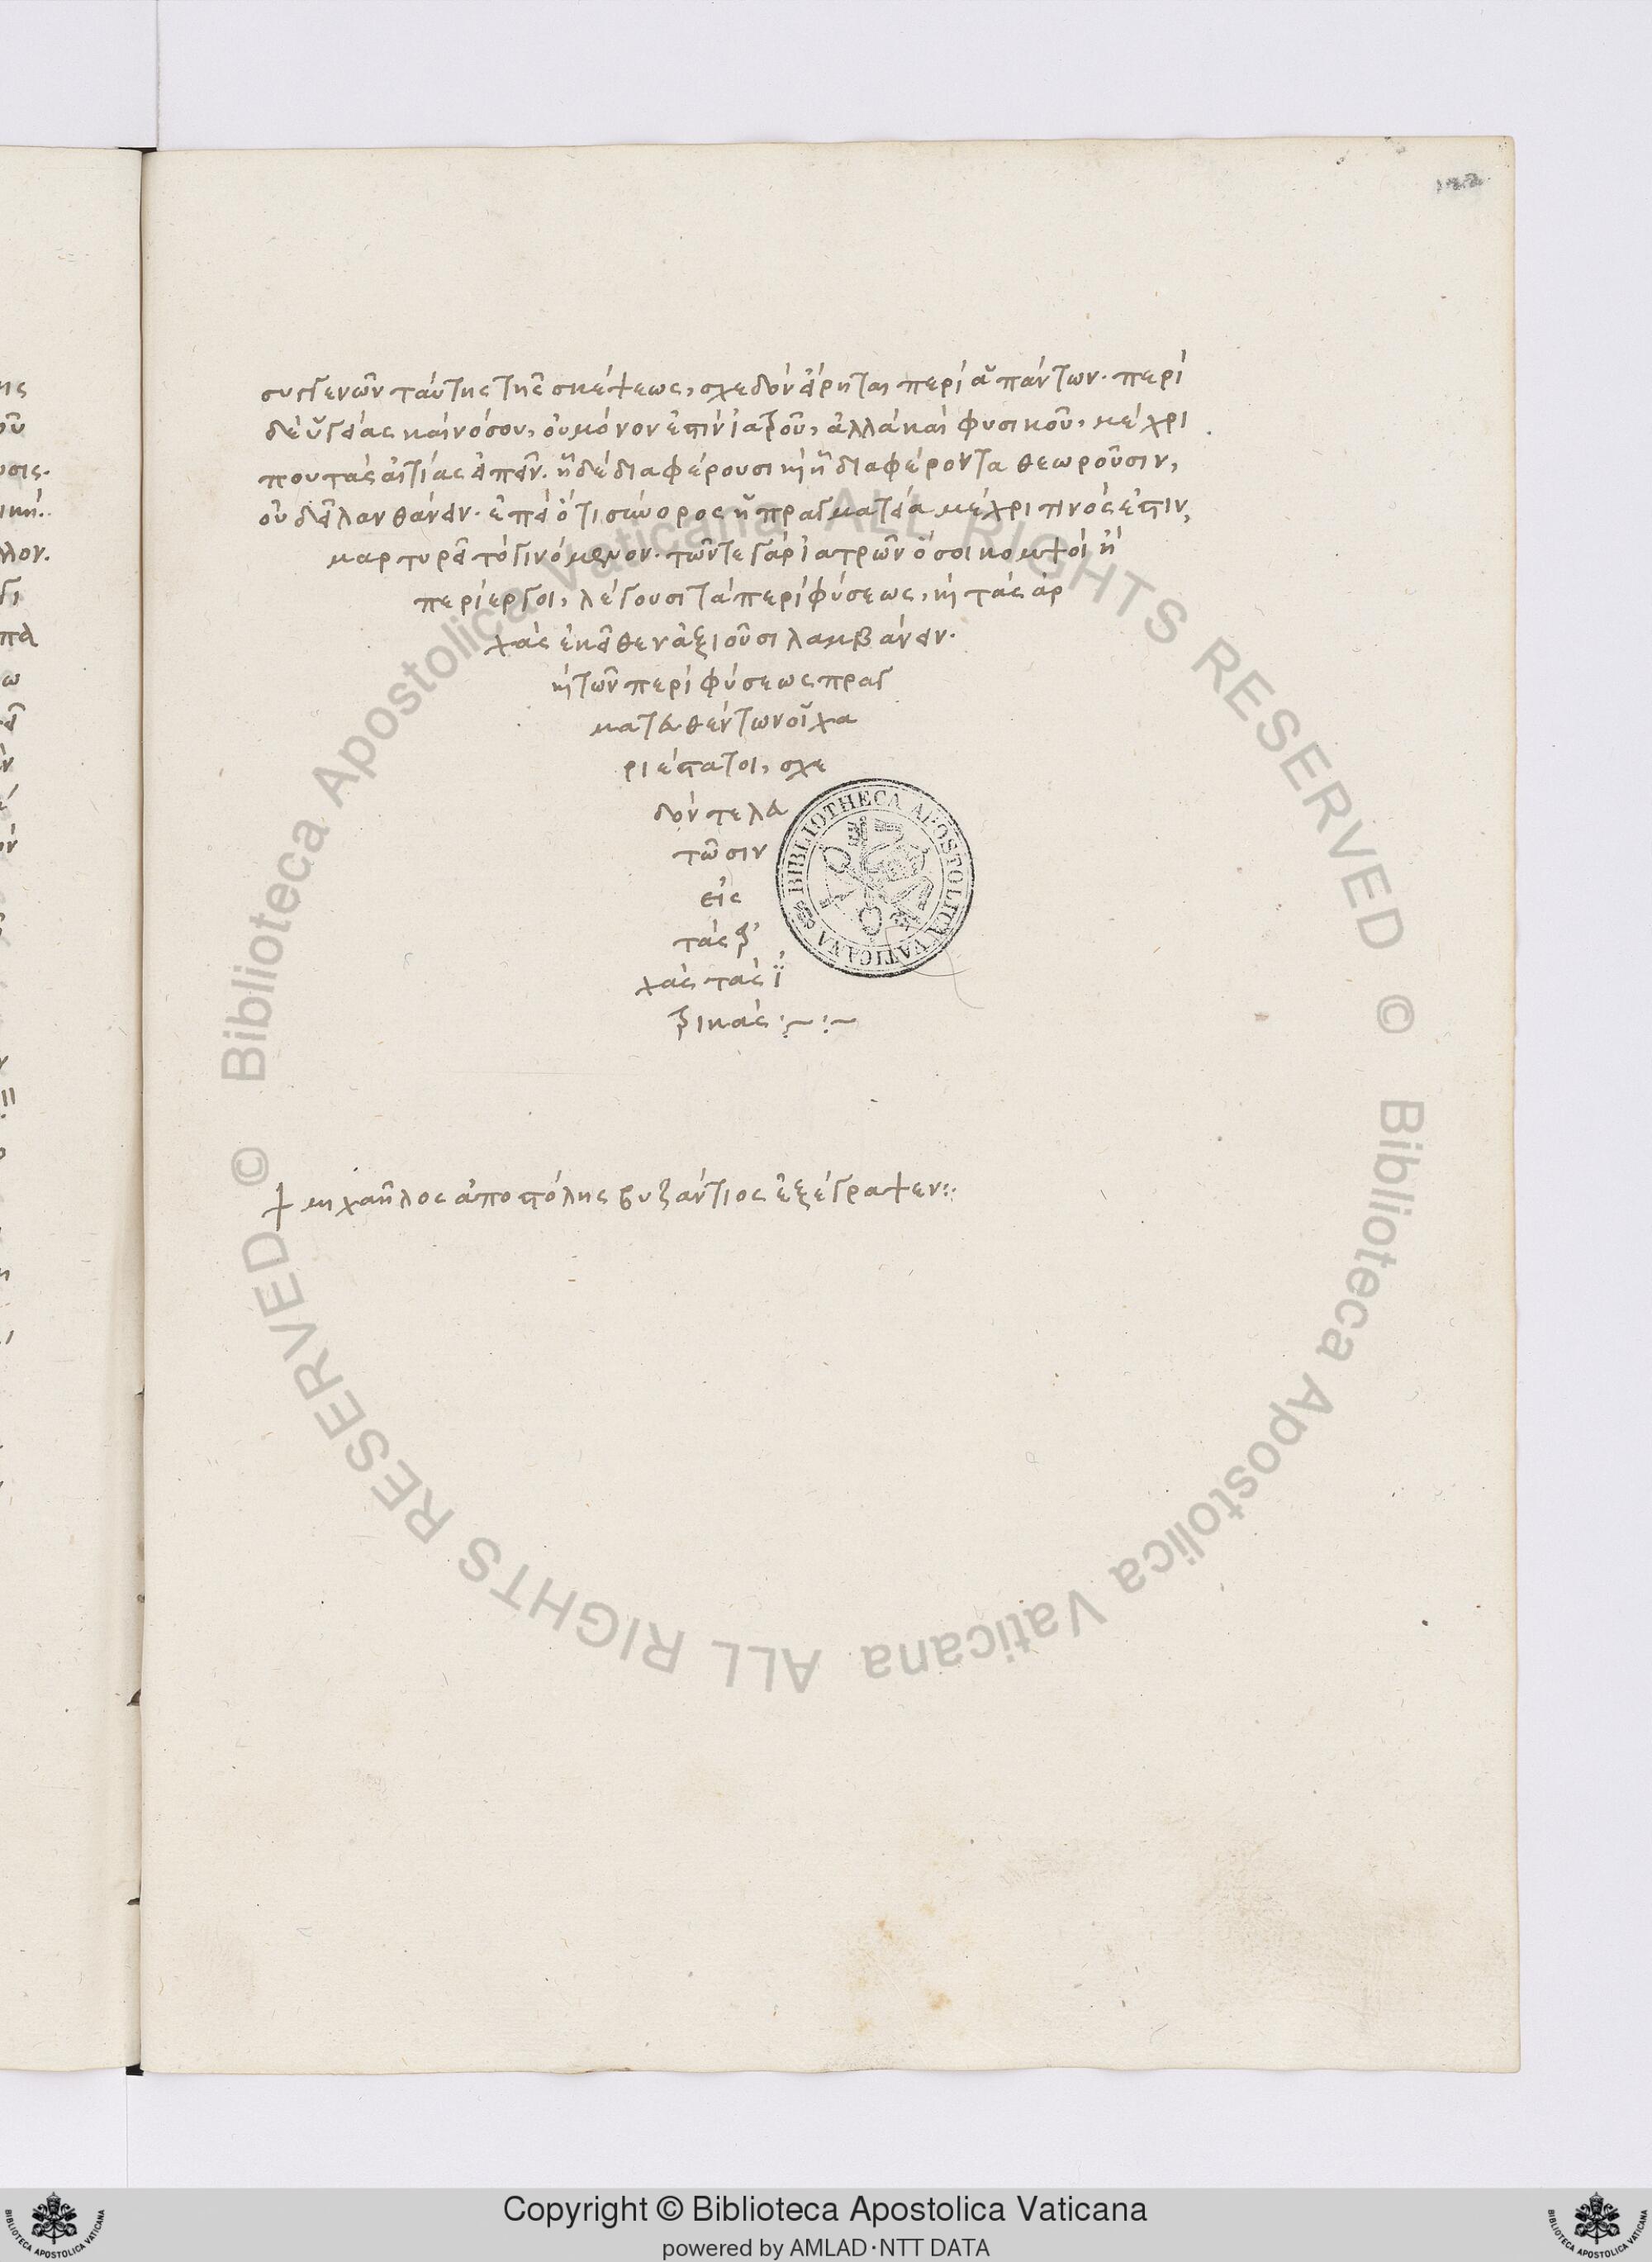 122
συγγενῶν ταύτης τῆς σκέψεως, σχεδὸν εἴρηται περὶ ἁπάντων. περὶ
δὲ ὑγείας καὶ νόσου, οὐ μόνον ἐστὶν ἰατροῦ, ἀλλὰ καὶ φυσικοῦ, μέχρι
που τὰς αἰτίας εἰπεῖν. ἧ δὲ διαφέρουσι καὶ ἧ διαφέροντα θεωροῦσιν,
οὐ δεῖ λανθάνειν. ἐπεὶ ὅτι σύνορος ἡ πραγματεία μέχρι τινός ἐστιν,
μαρτυρεῖ τὸ γινόμενον. τῶν τε γὰρ ἰατρῶν ὅσοι κομψοὶ ἢ
περίεργοι, λέγουσι τὰ περὶ φύσεως, καὶ τὰς ἀρ
χὰς ἐκεῖθεν ἀξιοῦσι λαμβάνειν.
καὶ τῶν περὶ φύσεως πραγ
ματευθέντων οἱ χα
ριέστατοι, σχε
δὸν τελευ
τῶσιν
εἰς
τὰς ἀρ
χὰς τὰς ἰα
τρικάς :~ :~
BIBLIOTHECA APOSTOLICA VATICANA
† μιχαῆλος ἀποστόλης βυζάντιος ἐξέγραψεν :·
© Biblioteca Apostolica Vaticana ALL RIGHTS RESERVED
© Biblioteca Apostolica Vaticana ALL RIGHTS RESERVED
Copyright © Biblioteca Apostolica Vaticana
powered by AMLAD·NTT DATA